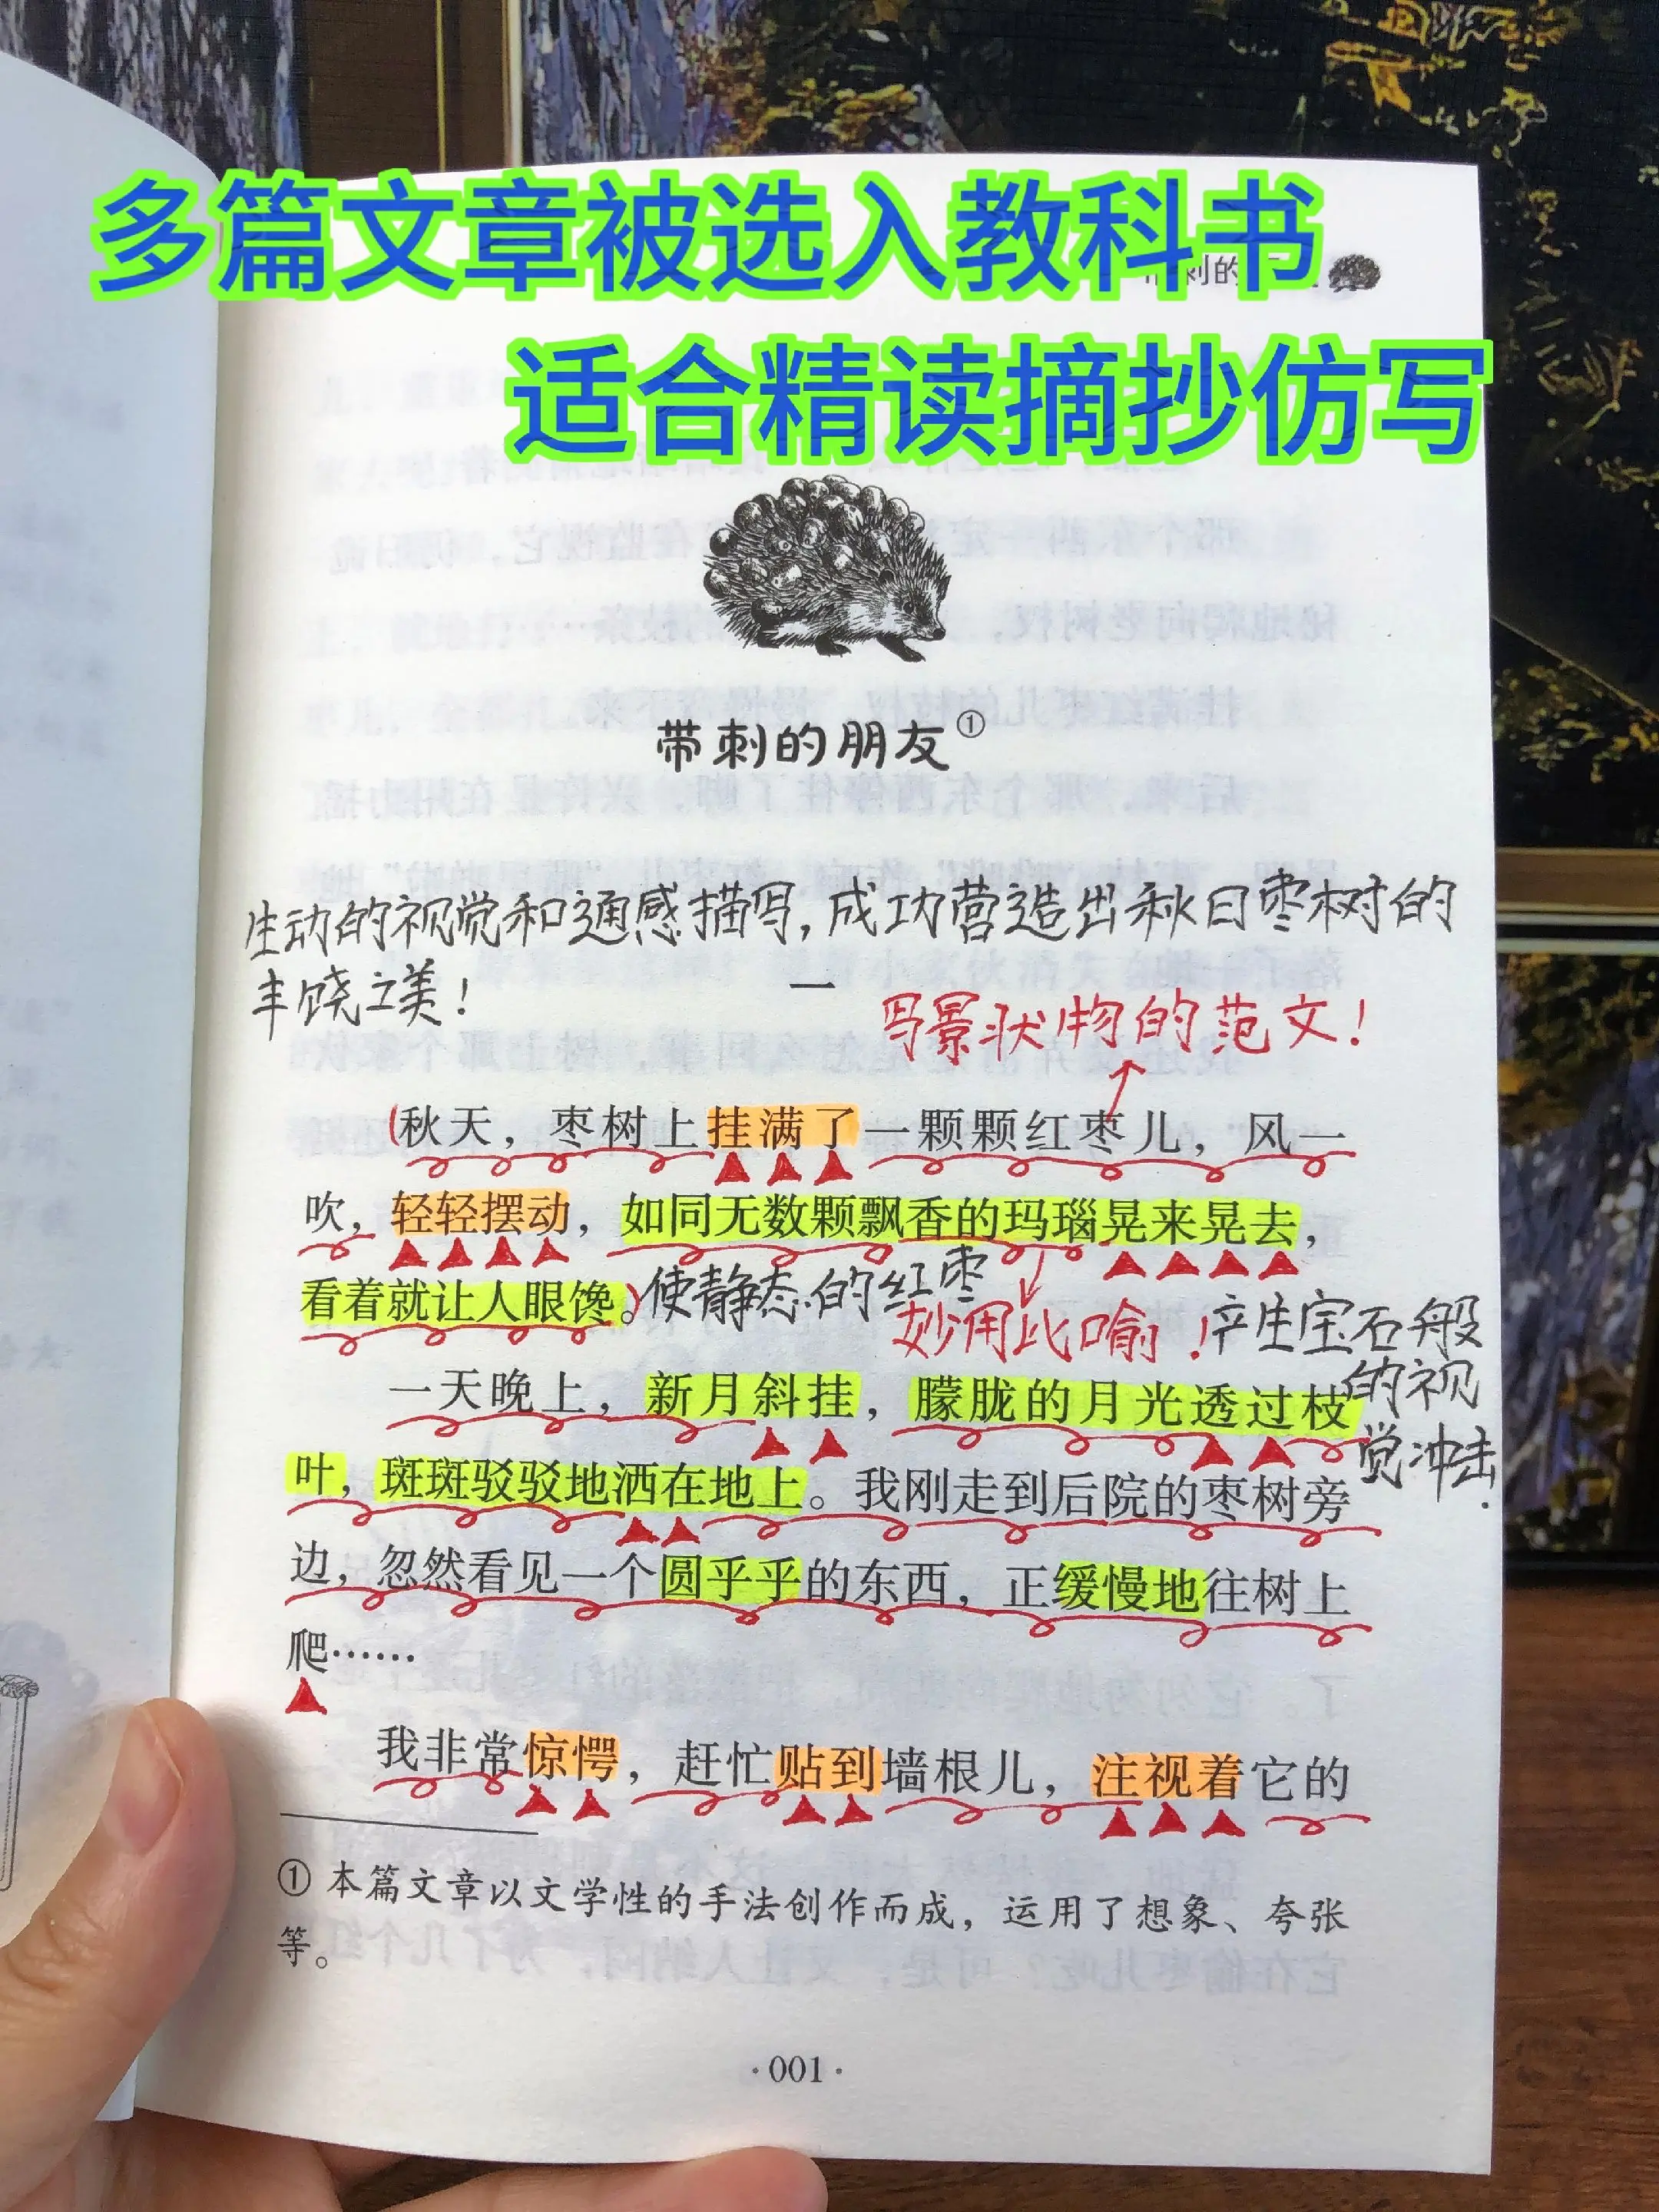 多篇文章被选入教科书
刺的
适合精读摘抄仿写
带刺的朋友①
生动的视觉和通感描写，成功营造出秋日枣树的
丰饶之美！
一
写景状物的范文！
(秋天，枣树上挂满了一颗颗红枣儿，风一
吹，轻轻摆动，如同无数颗飘香的玛瑙晃来晃去，
看着就让人眼馋。)
使静态的红枣
妙用比喻！
产生宝石般
的视
觉冲击.
一天晚上，新月斜挂，朦胧的月光透过枝
叶，斑斑驳驳地洒在地上。我刚走到后院的枣树旁
边，忽然看见一个圆乎乎的东西，正缓慢地往树上
爬……
我非常惊愕，赶忙贴到墙根儿，注视着它的
① 本篇文章以文学性的手法创作而成，运用了想象、夸张
等。
·001·